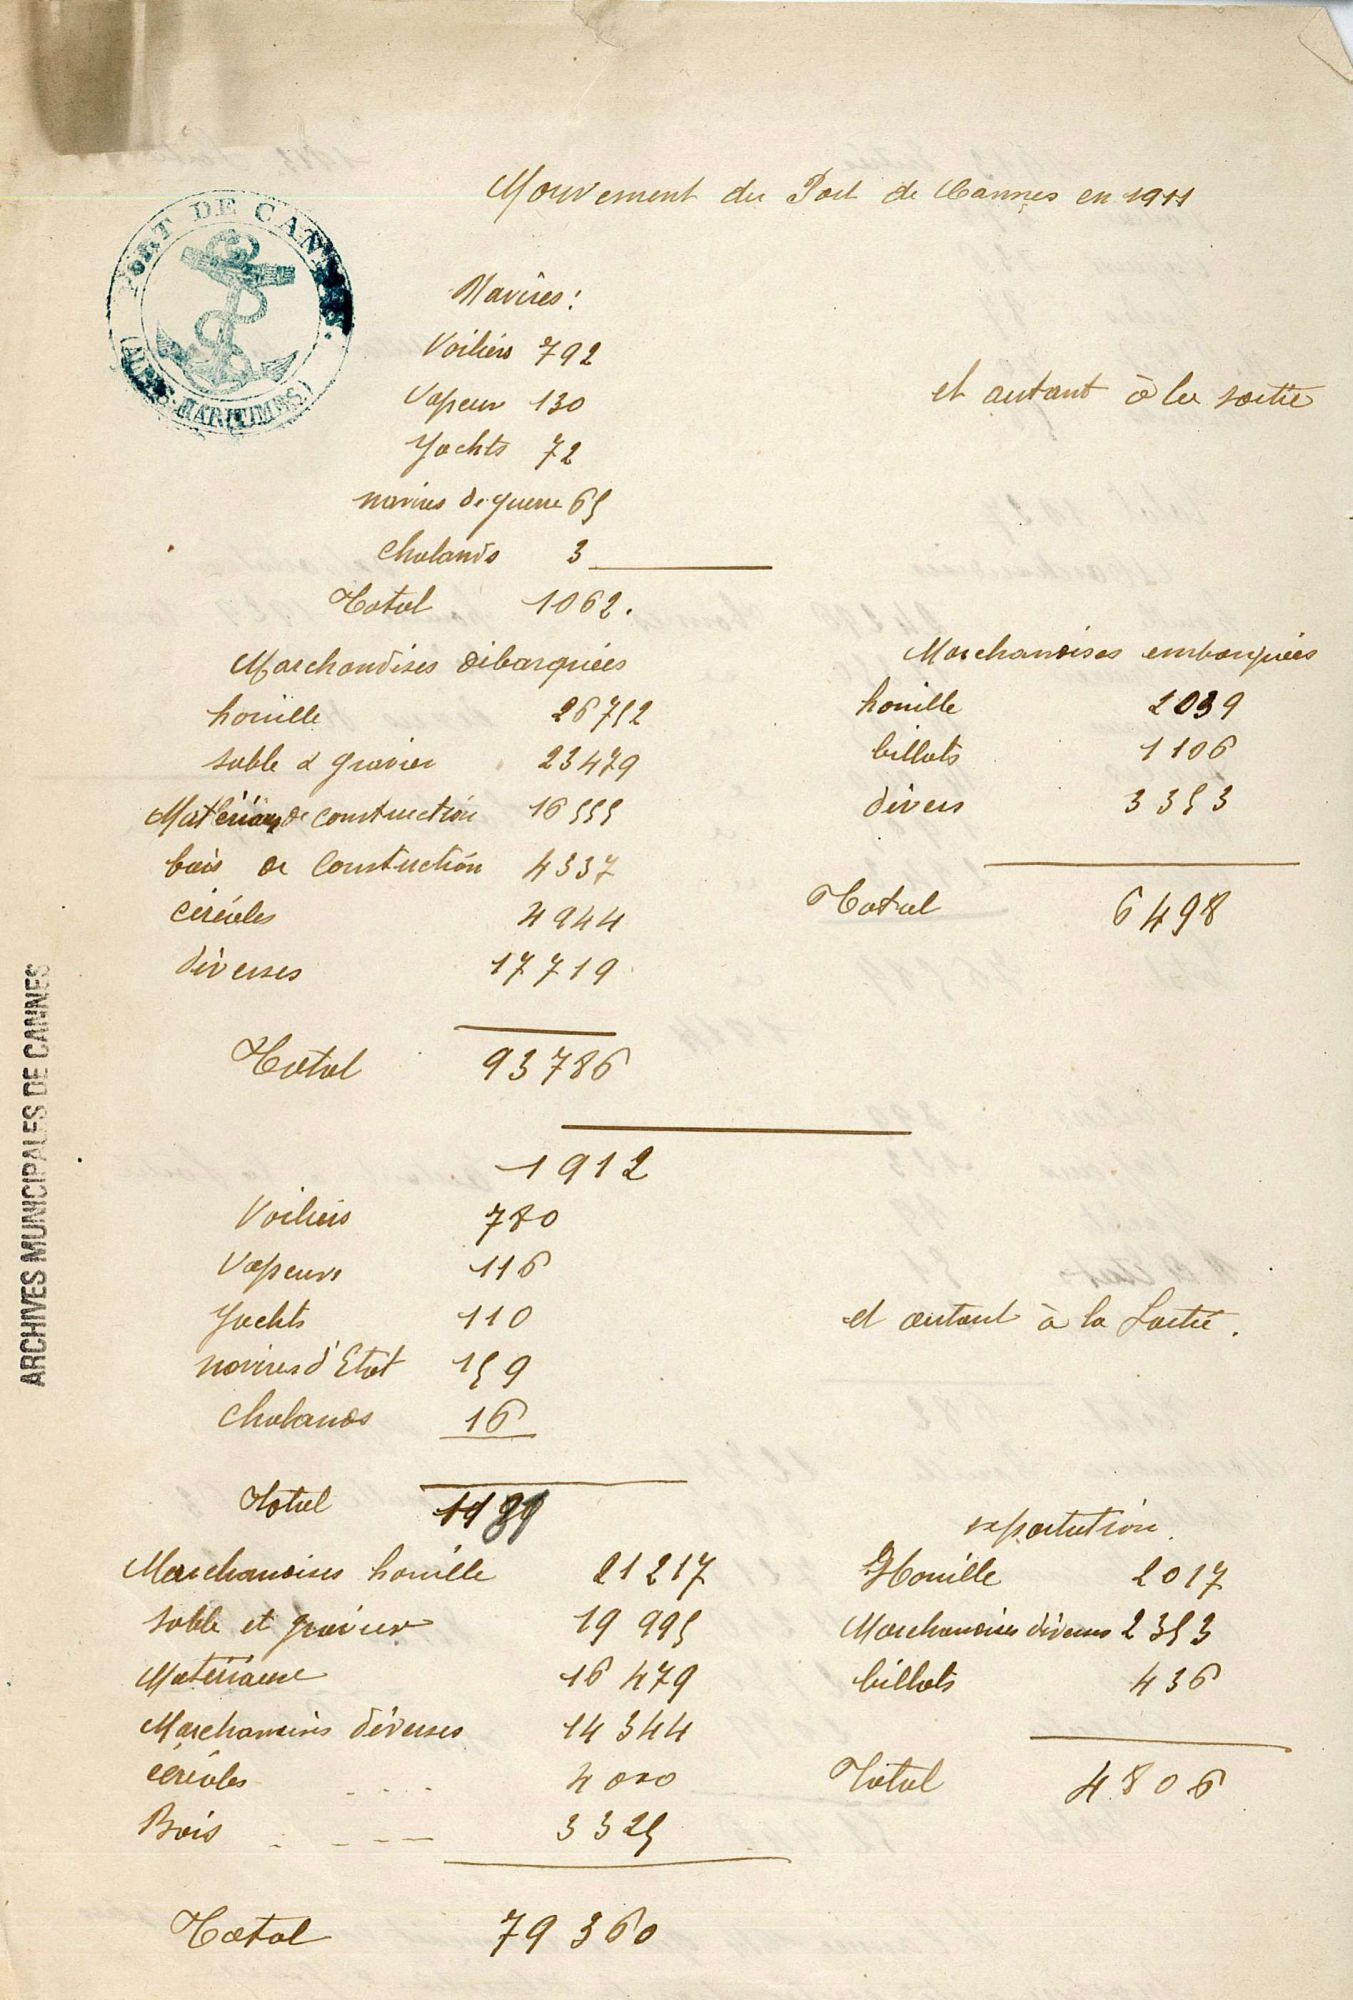 Mouvement du Port de Cannes en 1911
PORT DE CANNES.
(ALPES-MARITIMES)
Navires:
Voiliers 792
Vapeur 130
et autant à la sortie
Yachts 72
navires de guerre 65
Chalands 3
Total 1062.
Marchandises débarquées
houille 26752
sable & gravier 23479
Matériaux de construction 16555
bois de construction 4337
céréales 4944
diverses 17719
Total 93786
Marchandises embarquées
houille 2039
billots 1106
divers 3353
Total 6498
1912
Voiliers 780
Vapeurs 116
Yachts 110
et autant à la Sortie.
navires d'Etat 159
Chalands 16
Total
Marchandises houille 21217
sable et gravier 19995
Matériaux 16479
Marchandises diverses 14344
céréales . . . 4000
Bois - - - - 3325
Total 79360
exportation.
Houille 2017
Marchandises diverses 2353
billots 436
Total 4806
ARCHIVES MUNICIPALES DE CANNES